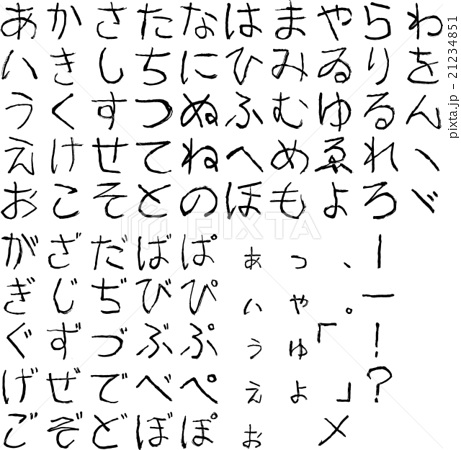 あかさたなはまやらわ
いきしちにひみゐりを
うくすつぬふむゆるん
えけせてねへめゑれヽ
おこそとのほもよろヾ
がざだばぱ ぁっ、ー
ぎじぢびぴ ぃゃ。—
ぐずづぶぷ ぅゅ「！
げぜでべぺ ぇょ」？
ごぞどぼぽ ぉ 〆
PIXTA
pixta.jp - 21234851